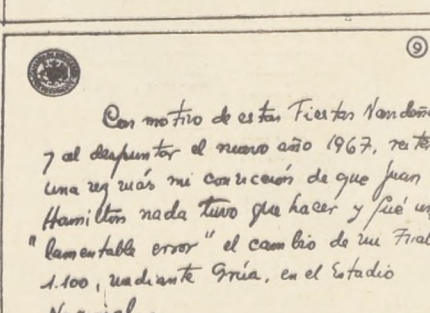 9
Con motivo de estas Fiestas Navideñ
y al despuntar el nuevo año 1967, reiter
una vez más mi convicción de que Juan
Hamilton nada tuvo que hacer y fué un
"lamentable error" el cambio de un Fiat
1.100, mediante Grúa, en el Estadio
Nacional